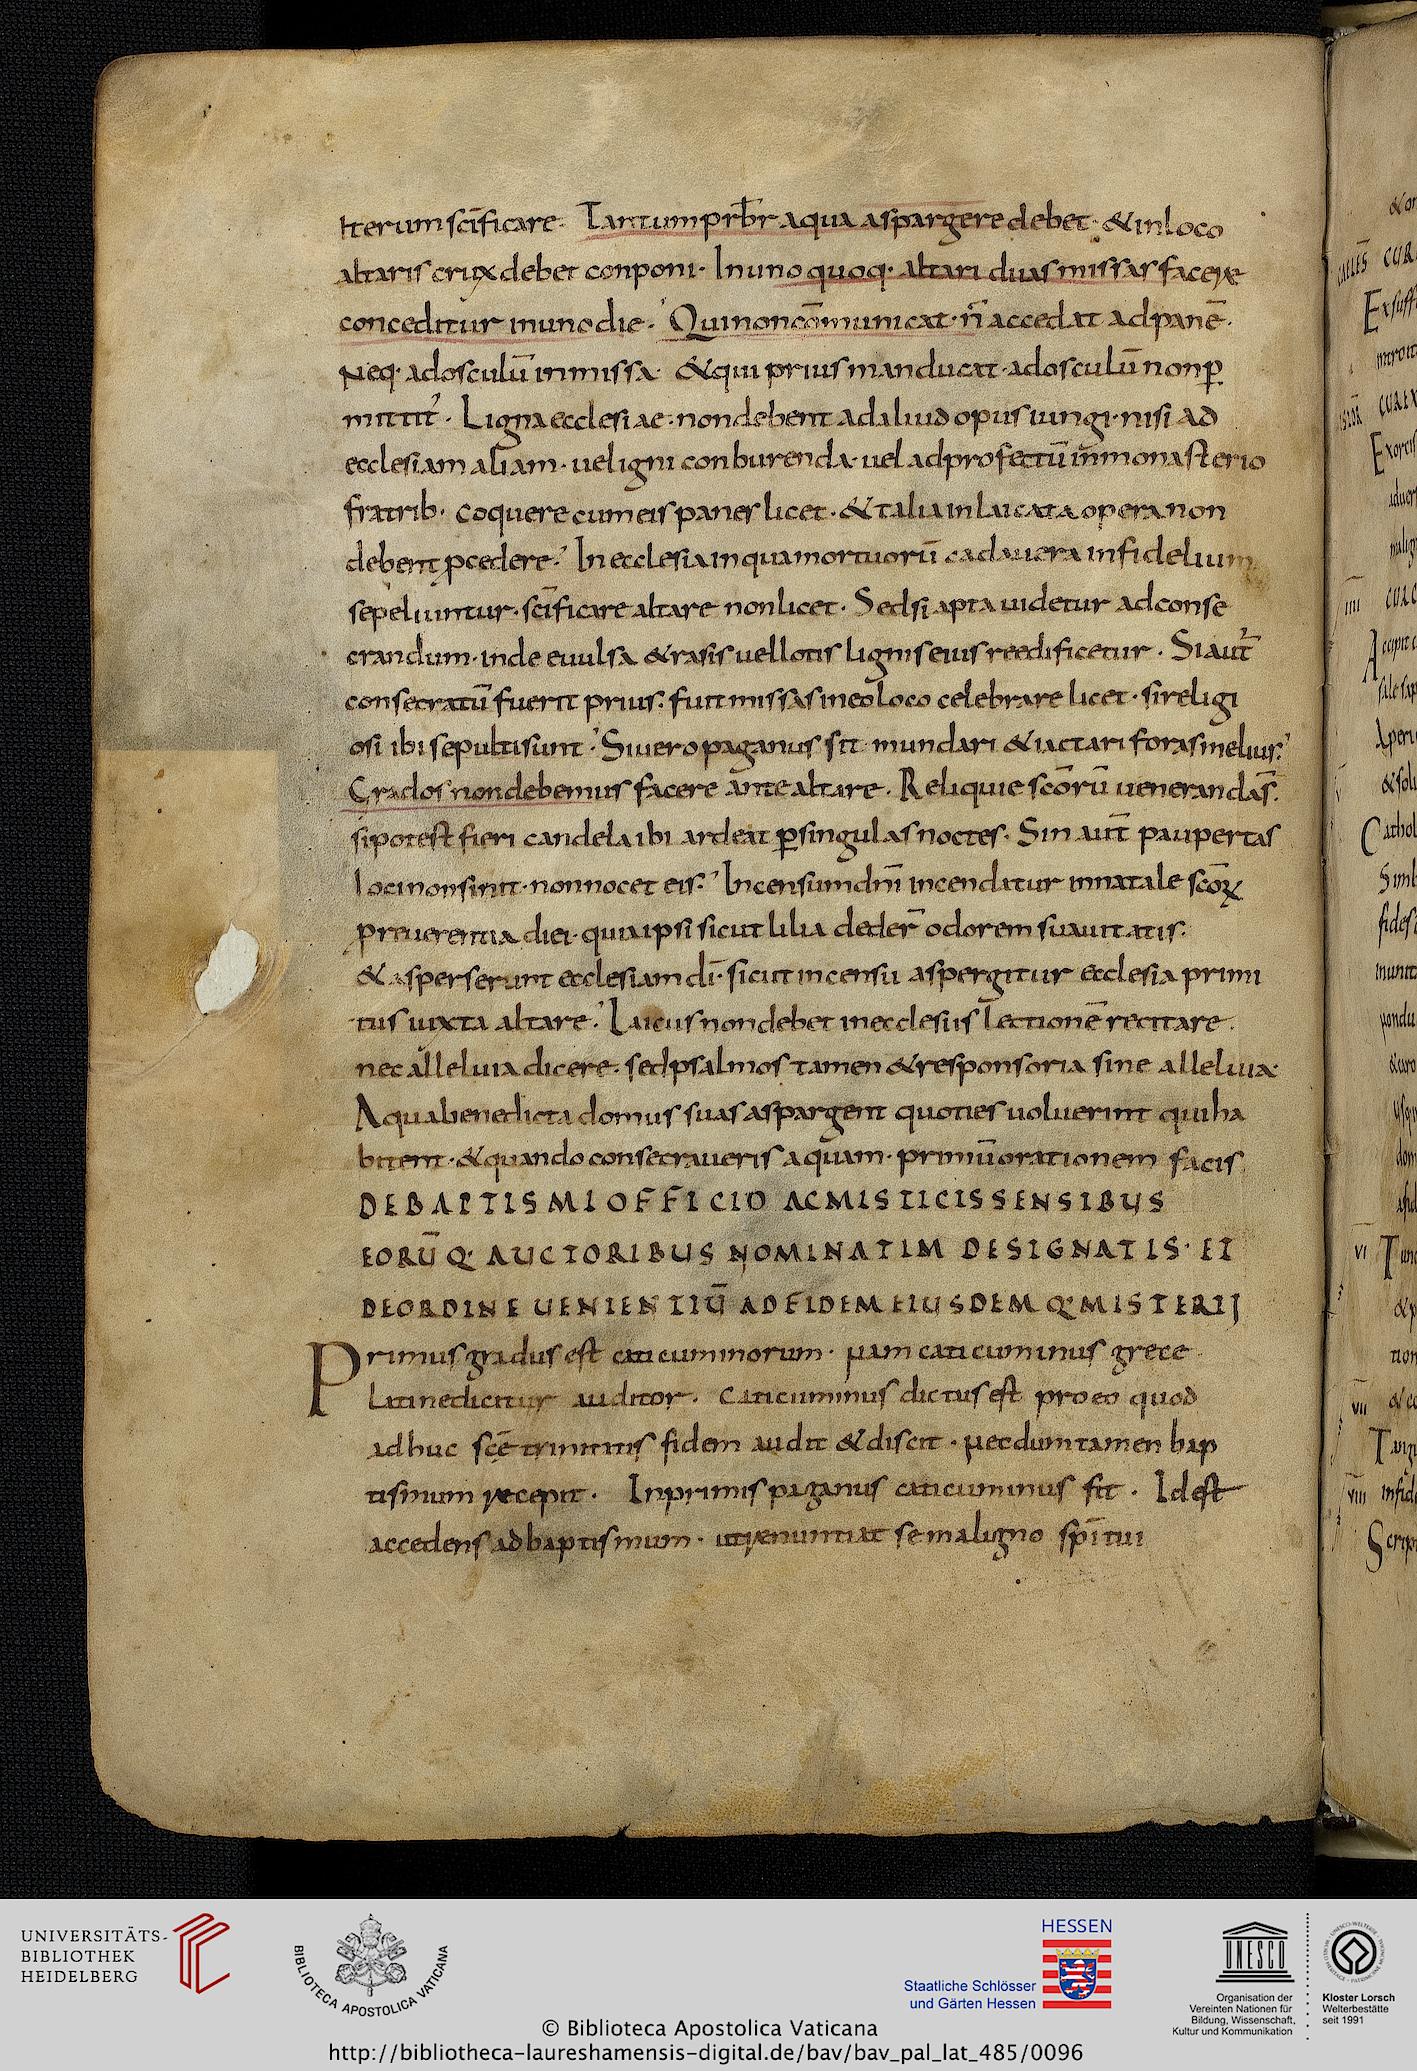 Iterum scīficare. Tantum prb̄r aqua aspargere debet. & in loco
altaris crux debet conponi. In uno quoq· altari duas missas facere
conceditur in uno die. Qui non cōmunicat. n̄ accedat ad panē.
Neq· ad osculū in missa. & qui prius manducat. ad osculū non ꝑ
mittit᾽. Ligna ecclesiae. non debent ad aliud opus iungi. nisi ad
ecclesiam aliam. uel igni conburenda. uel ad profectū in monasterio
fratrib· coquere cum eis panes licet. & talia in laicata opera non
debent ꝓcedere. In ecclesia in qua mortuorū cadauera infidelium
sepeliuntur. scīficare altare non licet. Sed si apta uidetur ad conse
crandum. inde euulsa & rasis uel lotis lignis eius reedificetur. Si aut̄
consecratū fuerit prius. fuit missas in eo loco celebrare licet. si religi
osi ibi sepulti sunt. Si uero paganus sit mundari & iactari foras melius.
Grados non debemus facere ante altare. Reliquie scōrū uenerandas̄.
si potest fieri candela ibi ardeat ꝑ singulas noctes. Sin aut̄ paupertas
loci non sinit. non nocet eis. Incensum dnī incendatur in natale scōꝝ
p reuerentia diei. quia ipsi sicut lilia deder̄ odorem suauitatis.
& asperserunt ecclesiam dī. sicut incensū aspergitur ecclesia primi
tus iuxta altare. Laicus non debet in ecclesiis lectionē recitare.
nec alleluia dicere. sed psalmos tamen & responsoria sine alleluia.
Aqua benedicta domus suas aspargent quoties uoluerint qui ha
bitent. & quando consecraueris aquam. primū orationem facis
DE BAPTISMI OFFICIO AC MISTICIS SENSIBUS
EORŪQ· AUCTORIBUS NOMINATIM DESIGNATIS· ET
DE ORDINE UENIENTIŪ AD FIDEM EIUSDEMQ· MISTERIJ
Primus gradus est caticuminorum. Nam caticuminus grece
Latine dicitur auditor. Caticuminus dictus est pro eo quod
adhuc scē trinitatis fidem audit & discit. Necdum tamen bap
tismum recepit. In primis paganus caticuminus fit. Id est
accedens ad baptismum. ut renuntiat se maligno spītui
UNIVERSITÄTS-
BIBLIOTHEK
HEIDELBERG
BIBLIOTECA APOSTOLICA VATICANA
HESSEN
Staatliche Schlösser
und Gärten Hessen
UNESCO
Organisation der
Vereinten Nationen für
Bildung, Wissenschaft,
Kultur und Kommunikation
Kloster Lorsch
Welterbestätte
seit 1991
© Biblioteca Apostolica Vaticana
http://bibliotheca-laureshamensis-digital.de/bav/bav_pal_lat_485/0096